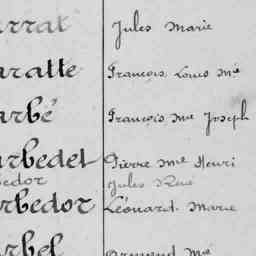 arrat Jules Marie
aratte François Louis Mie
arbé François Mie Joseph
arbedet Pierre Mie Henri
bedor Jules René
rbedor Léonard Marie
rbel Armand Mie